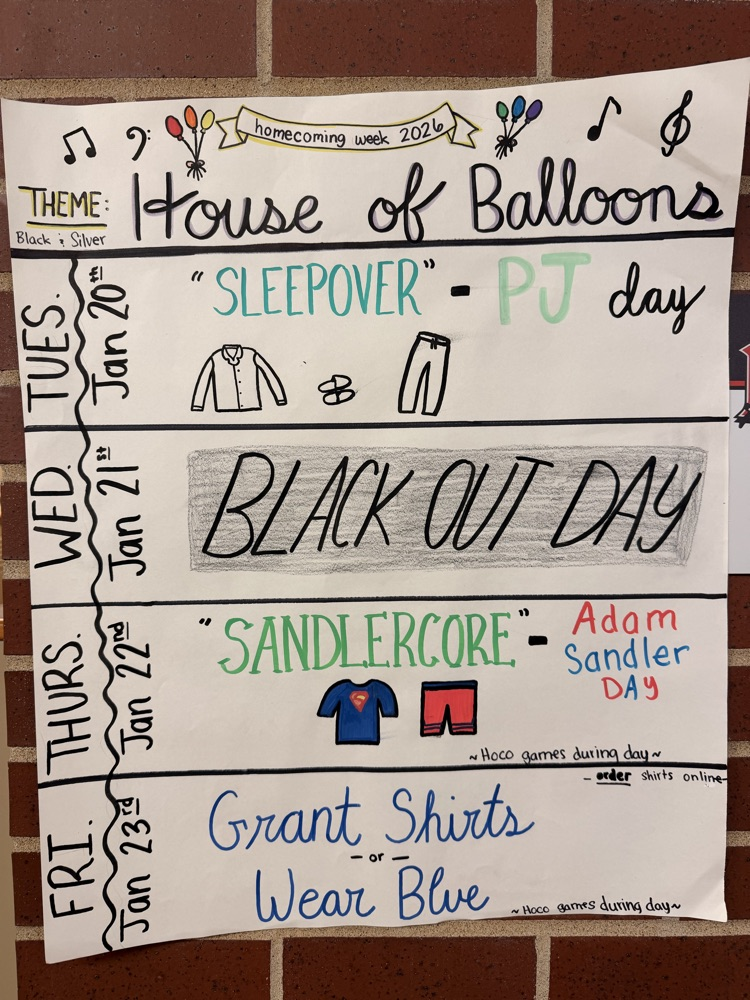 homecoming week 2026
THEME: House of Balloons
Black & Silver
TUES. Jan 20th
"SLEEPOVER" - PJ day
WED. Jan 21st
BLACK OUT DAY
THURS. Jan 22nd
"SANDLERCORE" - Adam
Sandler
DAY
~Hoco games during day~
FRI. Jan 23rd
- order shirts online-
Grant Shirts
- or -
Wear Blue
~Hoco games during day~